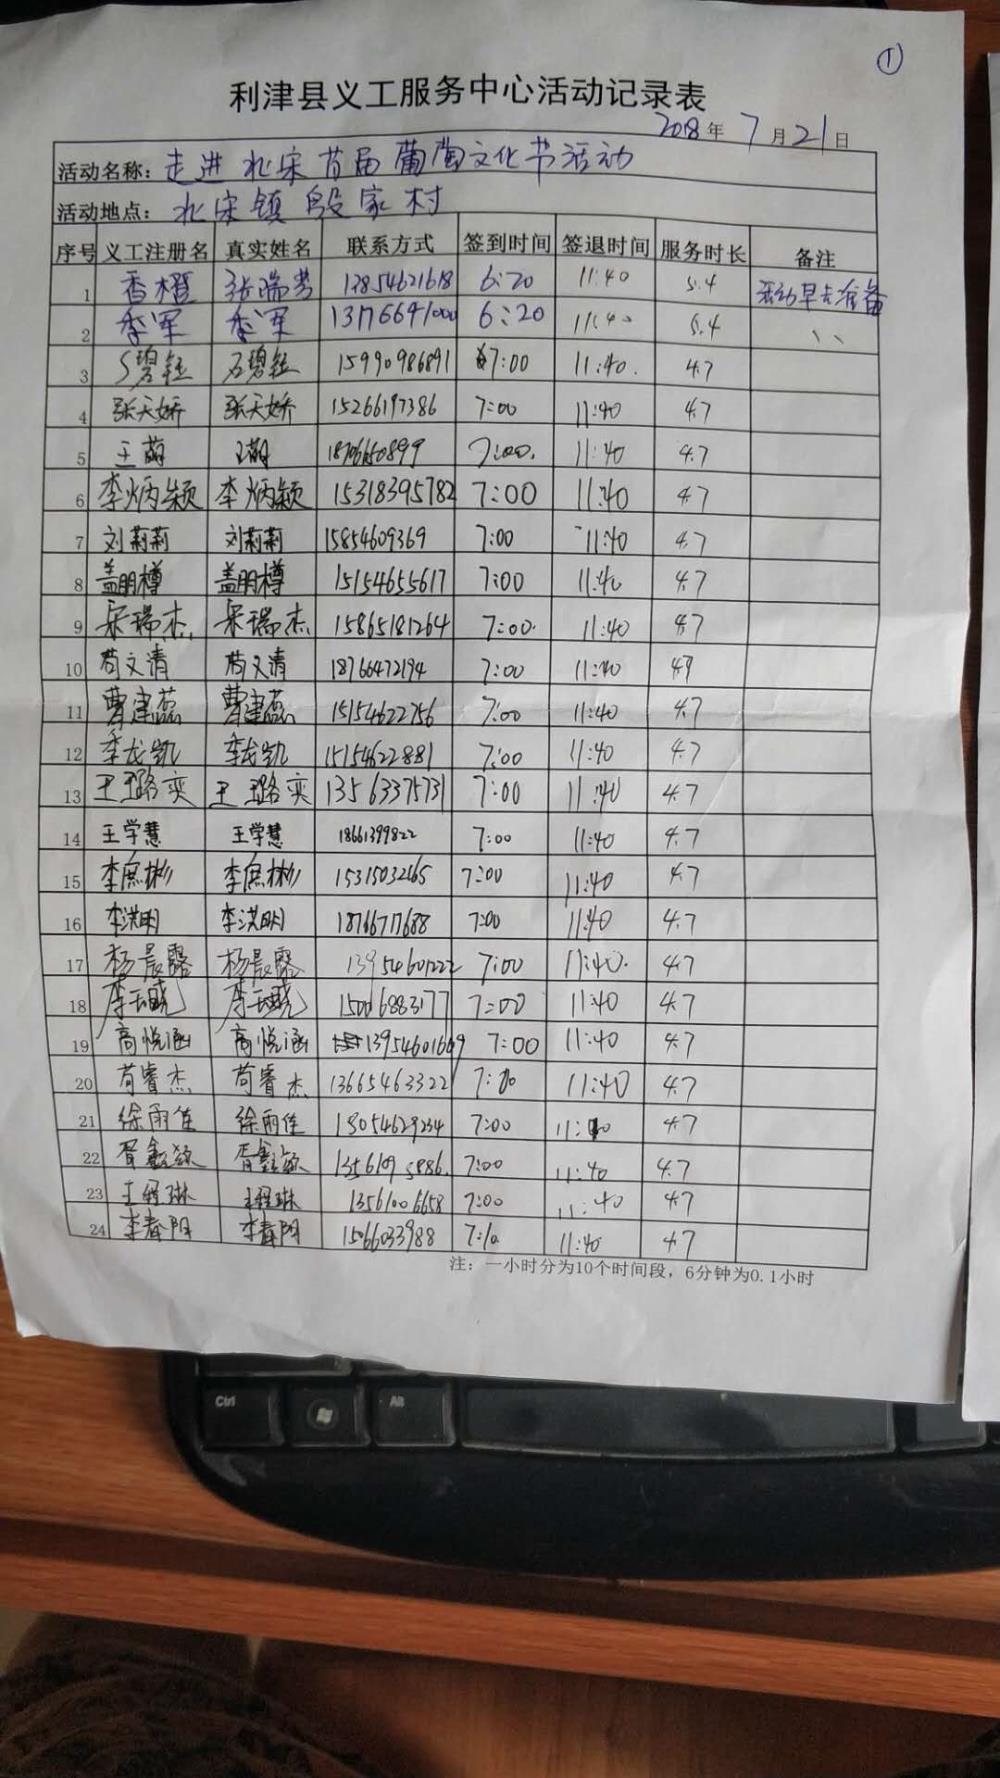 ①
利津县义工服务中心活动记录表
2018年 7月21日
活动名称: 走进北宋首届葡萄文化节活动
活动地点: 北宋镇殷家村
序号 义工注册名 真实姓名 联系方式 签到时间 签退时间 服务时长 备注
1 香橙 张瑞芳 13854621618 6:20 11:40 5.4 活动早去准备
2 季军 季军 6:20 11:40 5.4 、、
3 石碧钰 15990986891 7:00 11:40. 4.7
4 张天娇 张天娇 15266197386 7:00 11:40 4.7
5 王萌 王萌 18706650899 7:00. 11:40 4.7
6 李炳颖 李炳颖 15318395782 7:00 11:40 4.7
7 刘莉莉 刘莉莉 15854609369 7:00 11:40 4.7
8 盖明樽 盖明樽 15154655617 7:00 11:40 4.7
9 宋瑞杰 宋瑞杰 15865181264 7:00. 11:40 4.7
10 苟文清 苟文清 18766472194 7:00 11:40 4.7
11 曹建磊 曹建磊 15154622756 7:00 11:40 4.7
12 李龙凯 李龙凯 15154622881 7:00 11:40 4.7
13 王璐奕 王璐奕 13563375731 7:00 11:40 4.7
14 王学慧 王学慧 18661399822 7:00 11:40 4.7
15 李庶彬 李庶彬 15315032165 7:00 11:40 4.7
16 李洪明 李洪明 18766717688 7:00 11:40 4.7
17 杨晨露 杨晨露 13954601222 7:00 11:40. 4.7
18 李云晓 李云晓 15006883177 7:00 11:40 4.7
19 高悦涵 高悦涵 13954601669 7:00 11:40 4.7
20 苟睿杰 苟睿杰 13665463322 7:00 11:40 4.7
21 徐雨佳 徐雨佳 13054629234 7:00 11:40 4.7
22 胥鑫颖 胥鑫颖 13561095886. 7:00 11:40 4.7
23 王程琳 王程琳 13561006658 7:00 11:40 4.7
24 李春阳 李春阳 15066033988 7:10 11:40 4.7
注: 一小时分为10个时间段，6分钟为0.1小时
Ctrl Alt